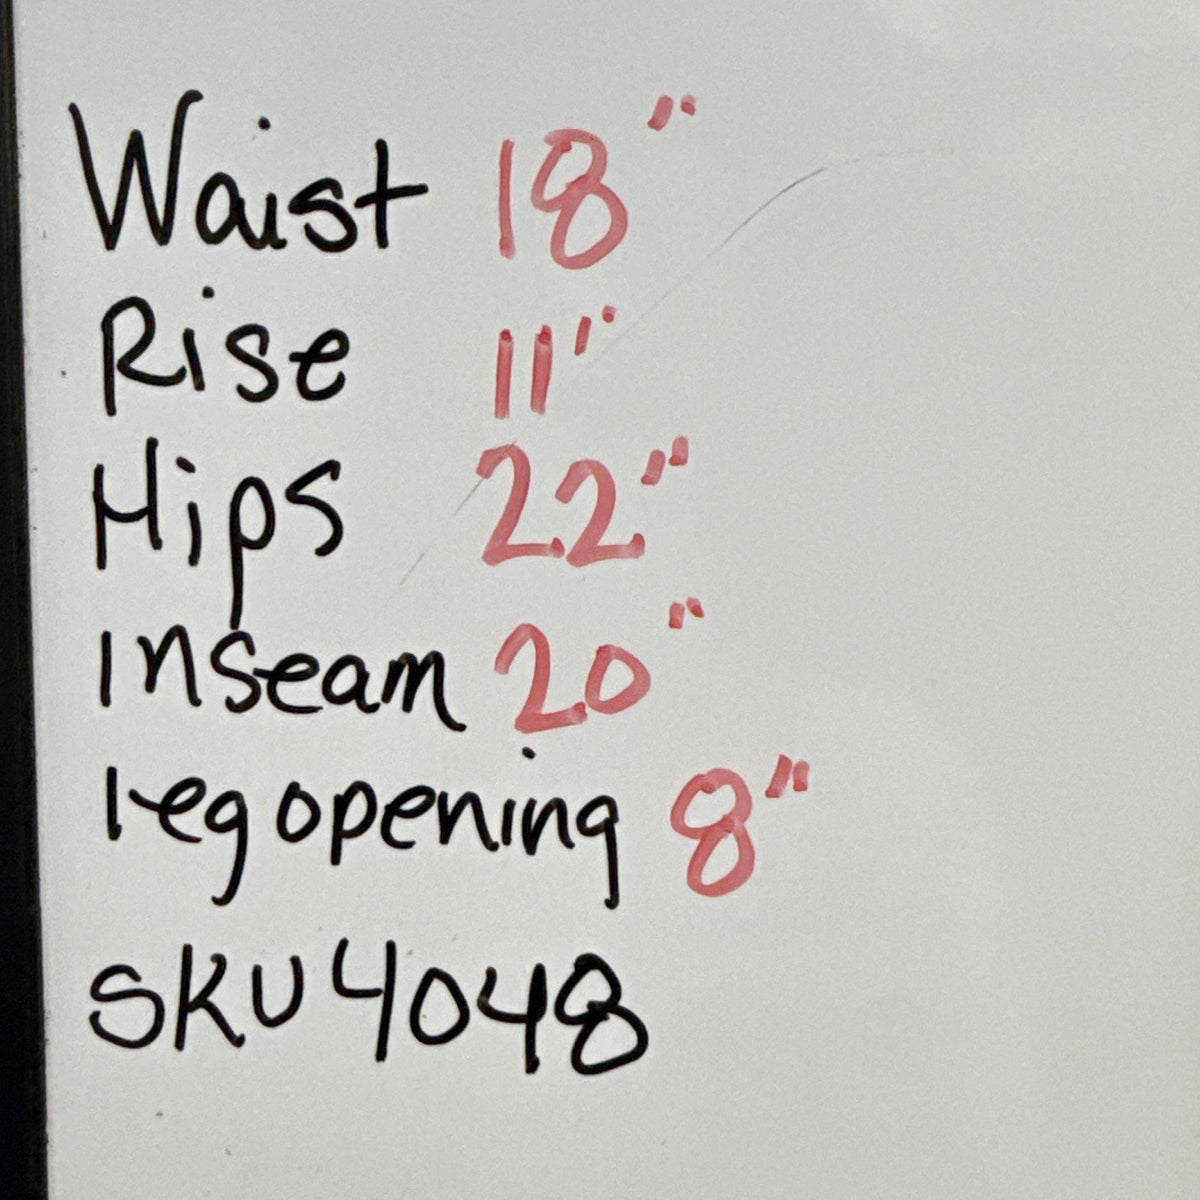 Waist 18"
Rise 11"
Hips 22"
Inseam 20"
leg opening 8"
SKU 4048